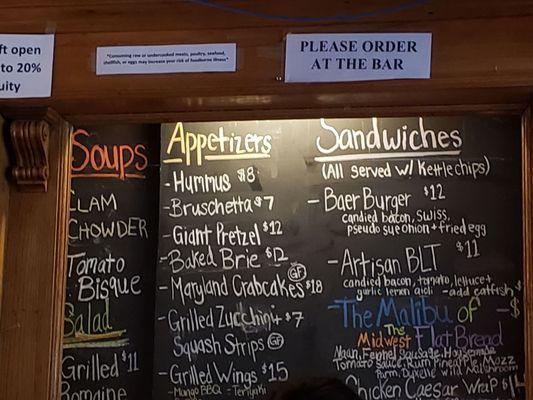 ft open
to 20%
uity
*Consuming raw or undercooked meats, poultry, seafood,
shellfish, or eggs may increase your risk of foodborne illness*
PLEASE ORDER
AT THE BAR
Soups
CLAM
CHOWDER
Tomato
Bisque
Salad
Grilled $11
Romaine
Appetizers
- Hummus $8
- Bruschetta $7
- Giant Pretzel $12
- Baked Brie $12
- Maryland Crabcakes GF $18
- Grilled Zucchini + $7
Squash Strips GF
- Grilled Wings $15
- Mango BBQ - Teriyaki
Sandwiches
(All served w/ Kettle chips)
- Baer Burger $12
candied bacon, swiss,
pseudo sue onion + fried egg
- Artisan BLT $11
candied bacon, tomato, lettuce +
garlic lemon aioli - add catfish $
- The Malibu of - $
The
Midwest Flat Bread
Naan, Fennel Sausage, House made
Tomato Sauce, Rum Pineapple, Mozz
Parm, Dukette Wild Mushroom
Chicken Caesar Wrap $14